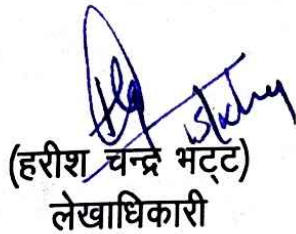 (हरीश चन्द्र भट्ट)
लेखाधिकारी